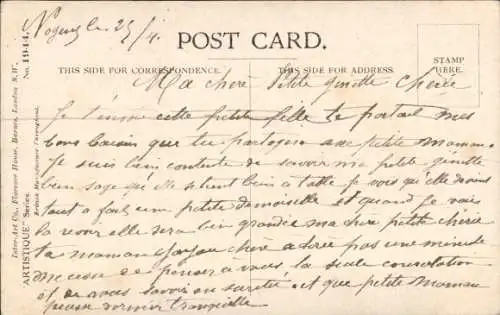 Nogent le 25/4.
POST CARD.
THIS SIDE FOR CORRESPONDENCE.
THIS SIDE FOR ADDRESS.
STAMP
HERE.
Inter-Art Co., Florence House, Barnes, London S.W.
"ARTISTIQUE" Series. No. 1944.
British Manufacture Throughout.
Ma chère petite gentille chérie
Je t'envoie cette petite fille te portait mes
bons baisers que tu partageras avec petite maman.
Je suis bien contente de savoir ma petite gentille
bien sage qu'elle se tient bien à table je vois qu'elle devient
tout à fait une petite demoiselle et quand je vais
la revoir elle sera bien grandie ma chère petite chérie
ta maman chère adorée pas une minute
ne cesse de penser à vous la seule consolation
est de vous savoir en sureté et que petite maman
peut dormir tranquille